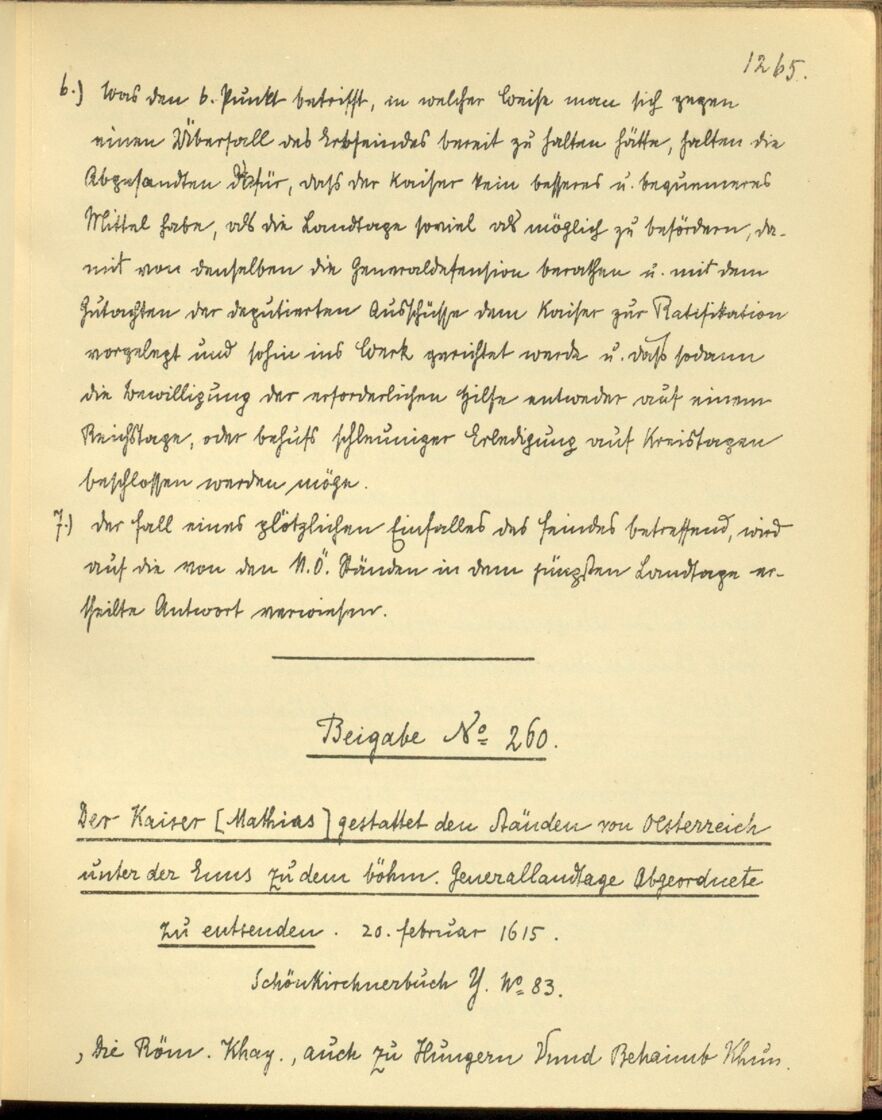 1265.
6.) Was den 6. Punkt betrifft, in welcher Weise man sich gegen
einen Überfall des Erbfeindes bereit zu halten hätte, halten die
Abgesandten dafür, daß der Kaiser kein besseres u. bequemeres
Mittel habe, als die Landtage soviel als möglich zu befördern, da-
mit von denselben die Generaldefension berathen u. mit dem
Gutachten der deputierten Ausschüsse dem Kaiser zur Ratifikation
vorgelegt und sohin ins Werk gerichtet werde u. daß sodann
die Bewilligung der erforderlichen Hilfe entweder auf einem
Reichstage, oder behufs schleuniger Erledigung auf Kreistagen
beschlossen werden möge.
7.) Der Fall eines plötzlichen Einfalles des Feindes betreffend, wird
auf die von den N.Ö. Ständen in dem jüngsten Landtage er-
theilte Antwort verwiesen.
Beigabe No 260.
Der Kaiser [Mathias] gestattet den Ständen von Oesterreich
unter der Enns zu dem böhm. Generallandtage Abgeordnete
zu entsenden. 20. Februar 1615.
Schönkirchnerbuch Y. No 83.
„Die Röm. Khay., auch zu Hungern Vnnd Behaimb Khün.